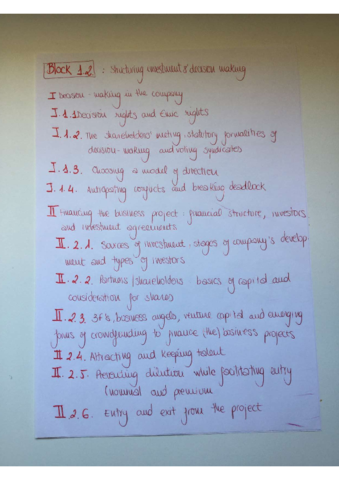 Block 1.2 : Structuring investment & decision making
I Decision-making in the company
I.1.1 Decision rights and Civic rights
I.1.2. The shareholders' meeting: statutory formalities of
decision-making and voting syndicates
I.1.3. Choosing a model of direction
I.1.4. Anticipating conflicts and breaking deadlock
II Financing the business project: financial structure, investors
and investment agreements
II.2.1. Sources of investment: stages of company's develop
ment and types of investors
II.2.2. Partners/shareholders basics of capital and
consideration for shares
II.2.3 3Fs, business angels, venture capital and emerging
forms of crowdfunding to finance (the) business projects
II.2.4. Attracting and keeping talent
II.2.5. dilution while facilitating entry
(nominal and premium
II.2.6. Entry and exit from the project